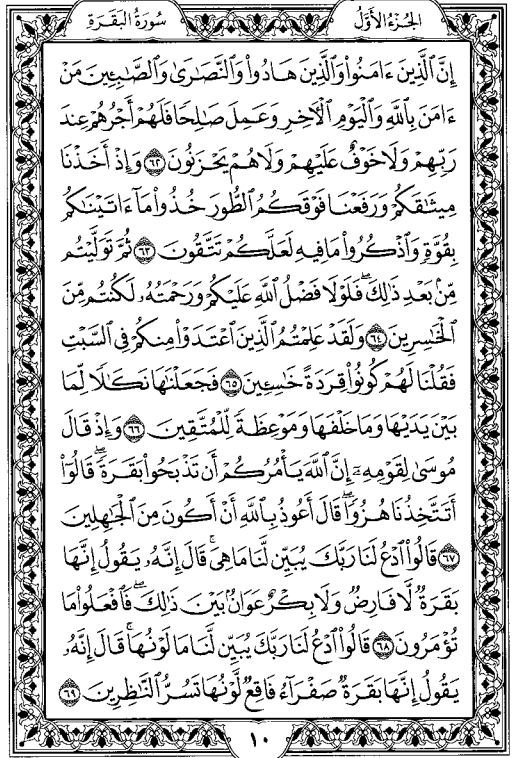 سُورَةُ البَقَرَةِ
الجُزْءُ الأَوَّلُ
إِنَّ ٱلَّذِينَ ءَامَنُوا۟ وَٱلَّذِينَ هَادُوا۟ وَٱلنَّصَـٰرَىٰ وَٱلصَّـٰبِـِٔينَ مَنْ
ءَامَنَ بِٱللَّهِ وَٱلْيَوْمِ ٱلْـَٔاخِرِ وَعَمِلَ صَـٰلِحًا فَلَهُمْ أَجْرُهُمْ عِندَ
رَبِّهِمْ وَلَا خَوْفٌ عَلَيْهِمْ وَلَا هُمْ يَحْزَنُونَ ٦٢ وَإِذْ أَخَذْنَا
مِيثَـٰقَكُمْ وَرَفَعْنَا فَوْقَكُمُ ٱلطُّورَ خُذُوا۟ مَآ ءَاتَيْنَـٰكُم
بِقُوَّةٍ وَٱذْكُرُوا۟ مَا فِيهِ لَعَلَّكُمْ تَتَّقُونَ ٦٣ ثُمَّ تَوَلَّيْتُم
مِّنۢ بَعْدِ ذَٰلِكَ ۖ فَلَوْلَا فَضْلُ ٱللَّهِ عَلَيْكُمْ وَرَحْمَتُهُۥ لَكُنتُم مِّنَ
ٱلْخَـٰسِرِينَ ٦٤ وَلَقَدْ عَلِمْتُمُ ٱلَّذِينَ ٱعْتَدَوْا۟ مِنكُمْ فِى ٱلسَّبْتِ
فَقُلْنَا لَهُمْ كُونُوا۟ قِرَدَةً خَـٰسِـِٔينَ ٦٥ فَجَعَلْنَـٰهَا نَكَـٰلًا لِّمَا
بَيْنَ يَدَيْهَا وَمَا خَلْفَهَا وَمَوْعِظَةً لِّلْمُتَّقِينَ ٦٦ وَإِذْ قَالَ
مُوسَىٰ لِقَوْمِهِۦٓ إِنَّ ٱللَّهَ يَأْمُرُكُمْ أَن تَذْبَحُوا۟ بَقَرَةً ۖ قَالُوٓا۟
أَتَتَّخِذُنَا هُزُوًا ۖ قَالَ أَعُوذُ بِٱللَّهِ أَنْ أَكُونَ مِنَ ٱلْجَـٰهِلِينَ
٦٧ قَالُوا۟ ٱدْعُ لَنَا رَبَّكَ يُبَيِّن لَّنَا مَا هِىَ ۚ قَالَ إِنَّهُۥ يَقُولُ إِنَّهَا
بَقَرَةٌ لَّا فَارِضٌ وَلَا بِكْرٌ عَوَانٌۢ بَيْنَ ذَٰلِكَ ۖ فَٱفْعَلُوا۟ مَا
تُؤْمَرُونَ ٦٨ قَالُوا۟ ٱدْعُ لَنَا رَبَّكَ يُبَيِّن لَّنَا مَا لَوْنُهَا ۚ قَالَ إِنَّهُۥ
يَقُولُ إِنَّهَا بَقَرَةٌ صَفْرَآءُ فَاقِعٌ لَّوْنُهَا تَسُرُّ ٱلنَّـٰظِرِينَ ٦٩
١٠